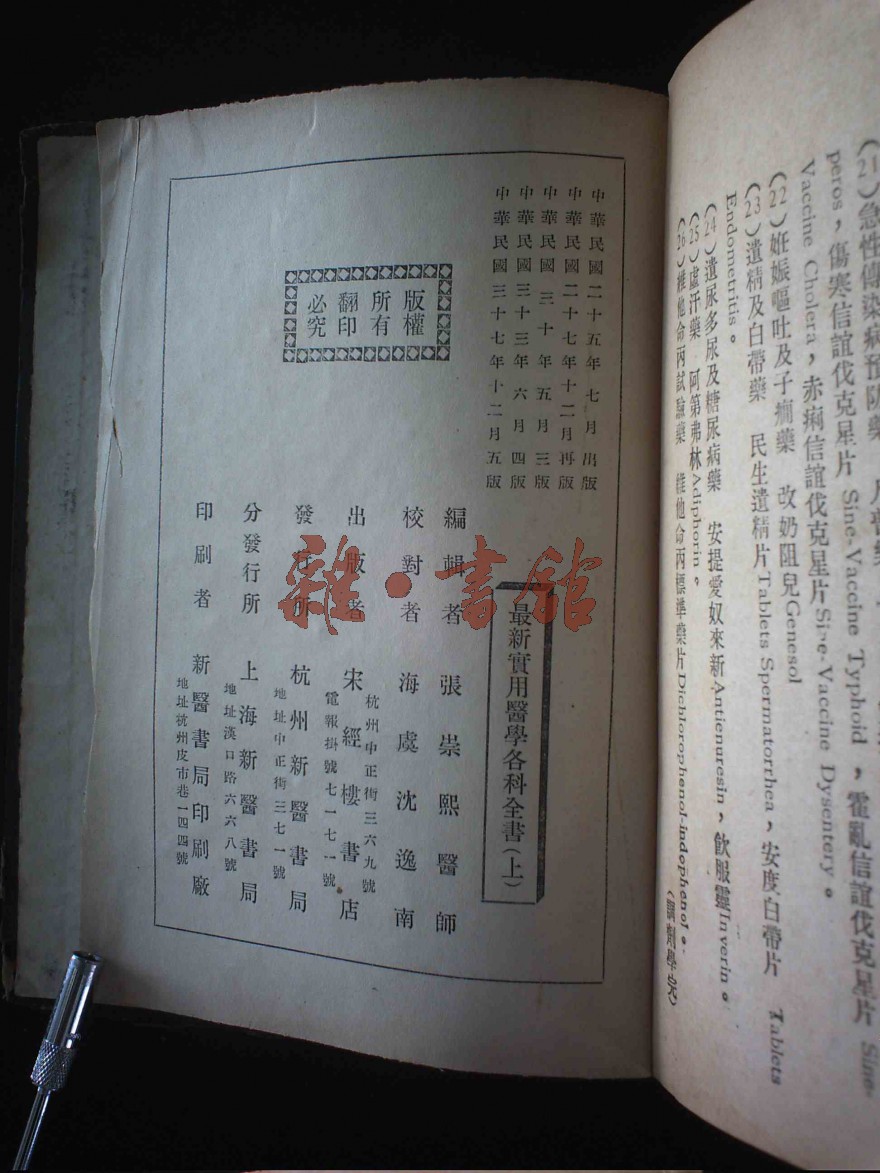 (21)急性傳染病預防藥
peros，傷寒信誼伐克星片 Sine-Vaccine Typhoid，霍亂信誼伐克星片 Sine-
Vaccine Cholera，赤痢信誼伐克星片 Sine-Vaccine Dysentery。
(22)姙娠嘔吐及子癇藥　改奶阻兒Genesol
(23)遺精及白帶藥　民生遺精片Tablets Spermatorrhea，安度白帶片 Tablets
Endometritis。
(24)遺尿多尿及糖尿病藥　安提愛奴來新Antienuresin，飲服靈Inverin。
(25)盧汗藥　阿第弗林Adiphorin。
(26)維他命丙試驗藥　維他命丙標準藥片Dichlorophenol-indophenol。
(調劑學完)
中華民國二十五年七月出版
中華民國二十七年十二月再版
中華民國三十年五月三版
中華民國三十三年六月四版
中華民國三十七年十二月五版
版權
所有
翻印
必究
最新實用醫學各科全書(上)
編輯者　張崇熙醫師
校對者　海虞沈逸南
出版者　宋經樓書店
杭州中正街三六九號
電報掛號七一七一號
發行所　杭州新醫書局
地址中正街三七一號
分發行所　上海新醫書局
地址漢口路六六八號
印刷者　新醫書局印刷廠
地址杭州皮市巷一四四號
雜·書館